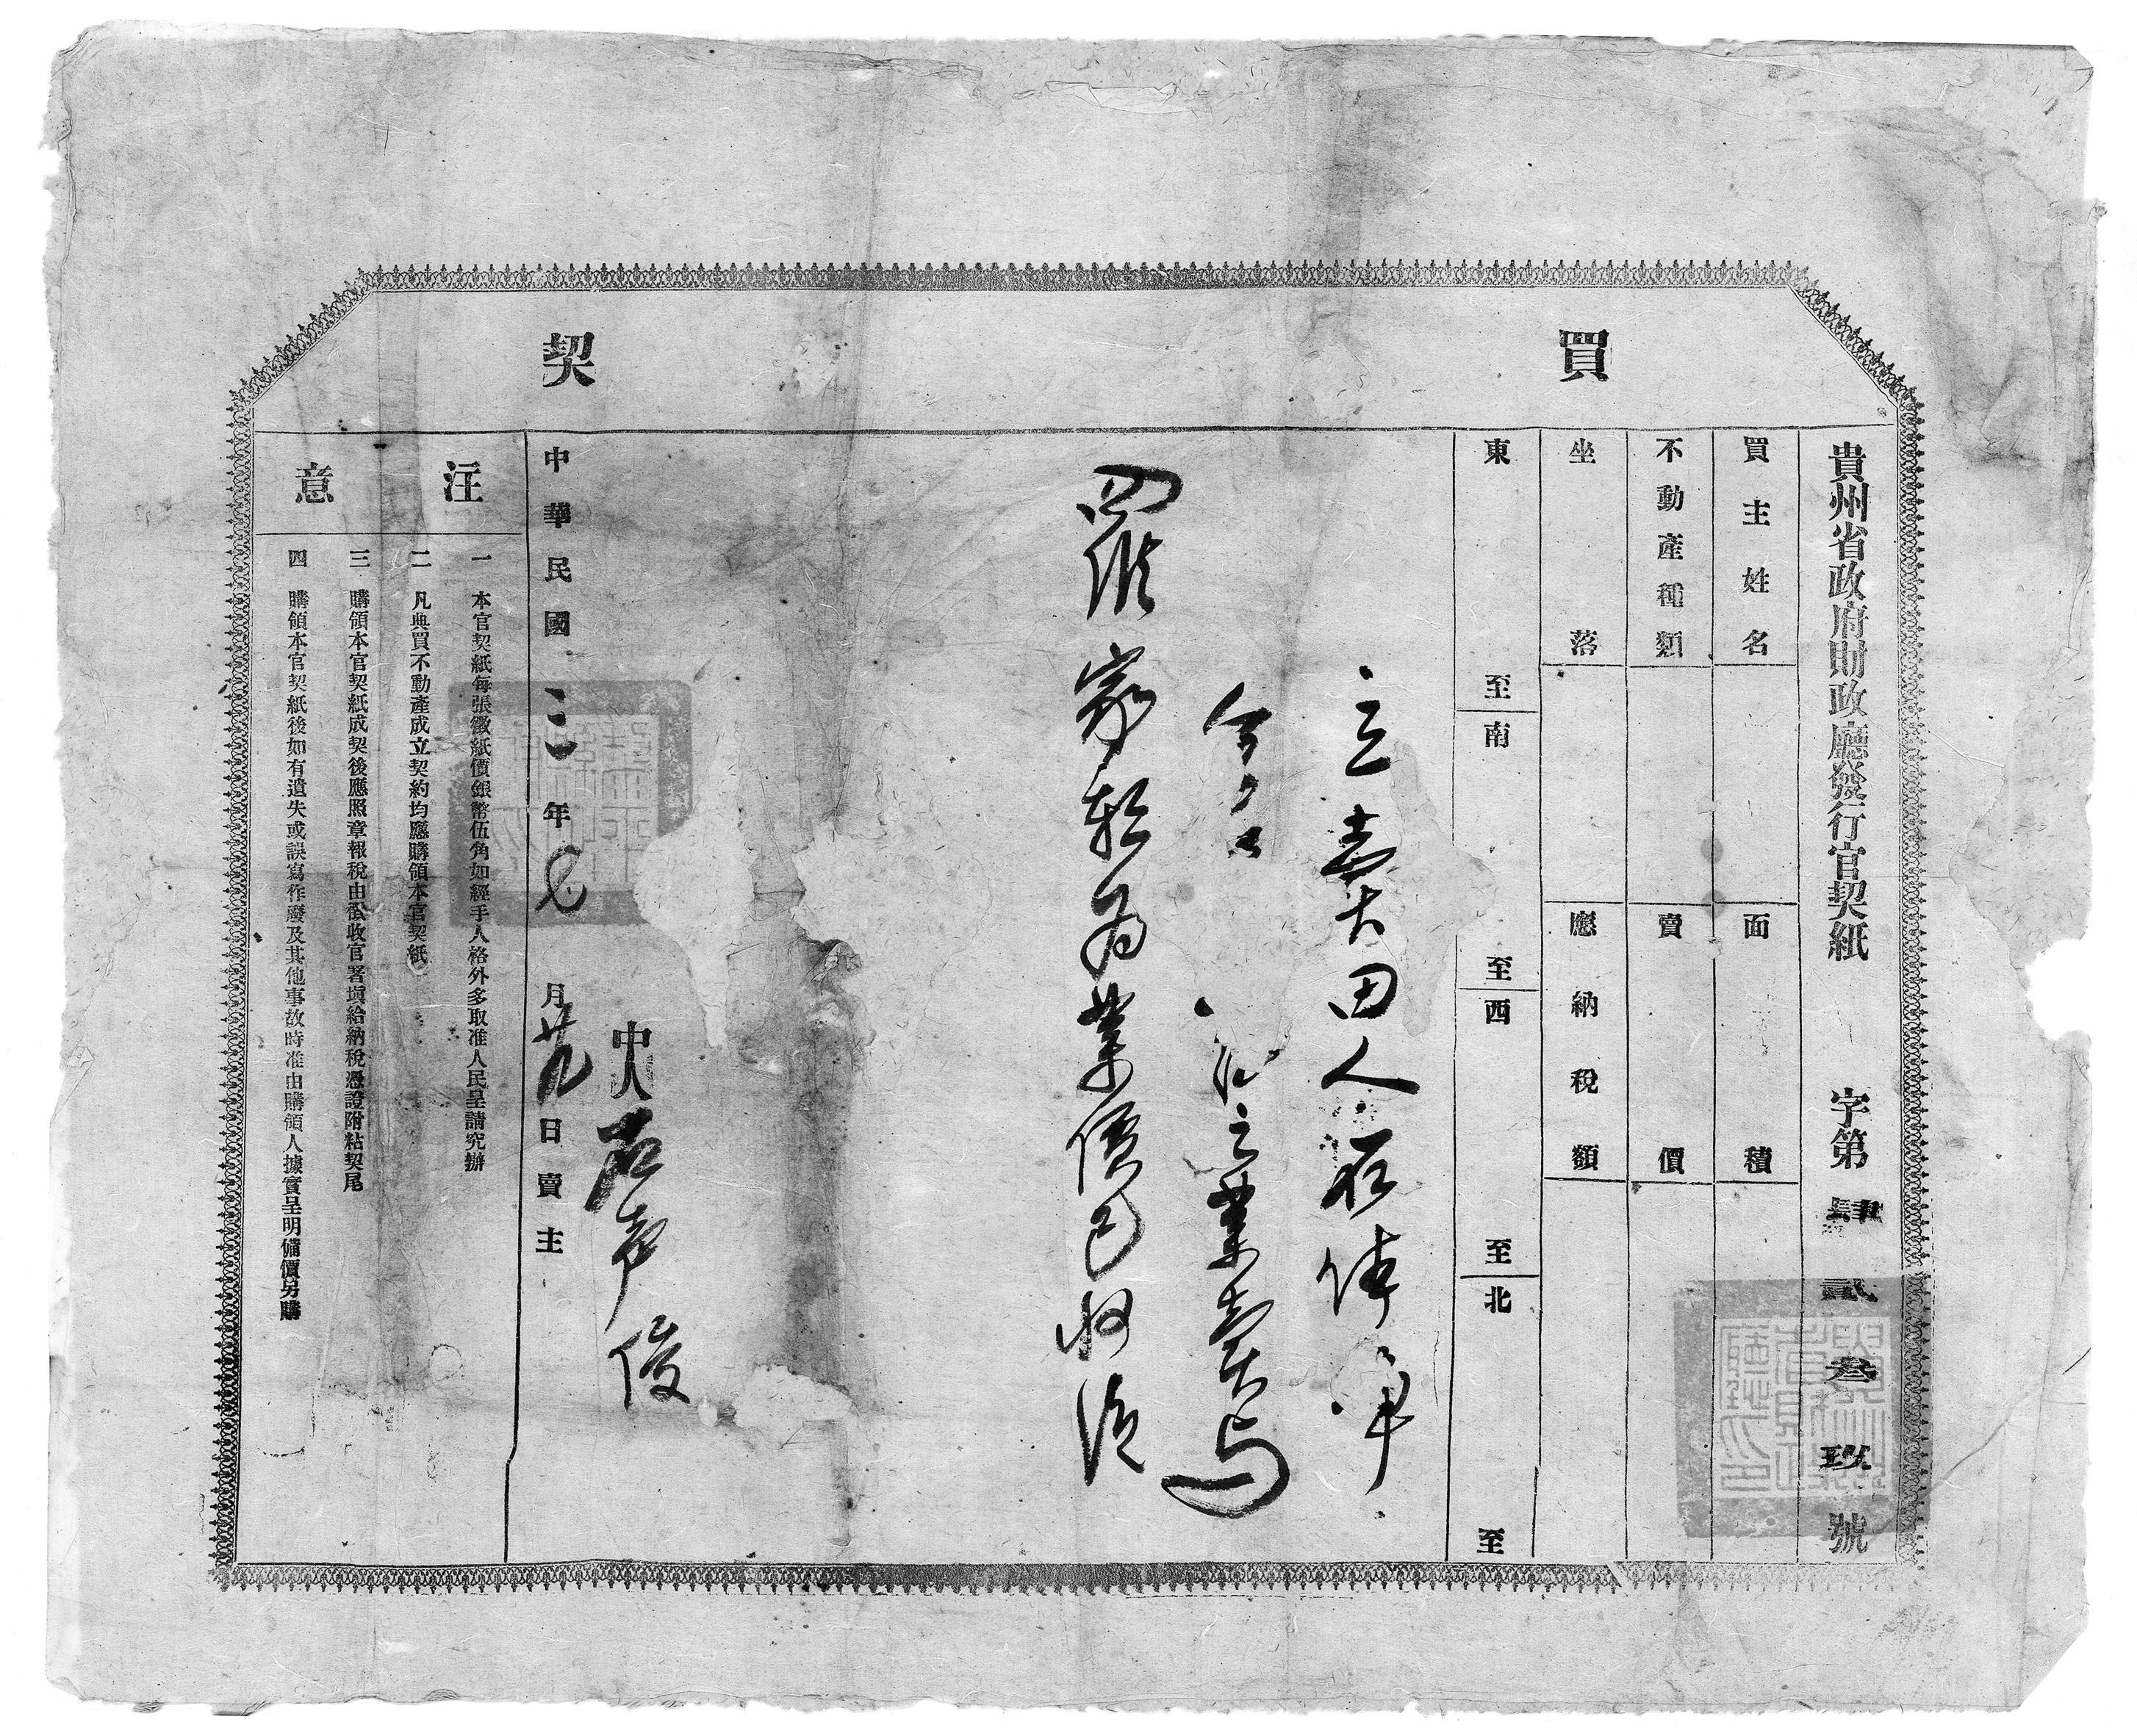 買契
貴州省政府財政廳發行官契紙 字第肆貳叁玖號
買主姓名
面積
不動產種類
賣價
坐落
應納稅額
東至
南至
西至
北至
立賣田人石体
今
之業賣與
羅 家耘為業價已收清
中人石声俊
中華民國三年 月廿九日賣主
注意
一 本官契紙每張徵紙價銀幣伍角如經手人格外多取准人民呈請究辦
二 凡典買不動產成立契約均應購領本官契紙
三 購領本官契紙成契後應照章報稅由徵收官署填給納稅憑證附粘契尾
四 購領本官契紙後如有遺失或誤寫作廢及其他事故時准由購領人據實呈明備價另購